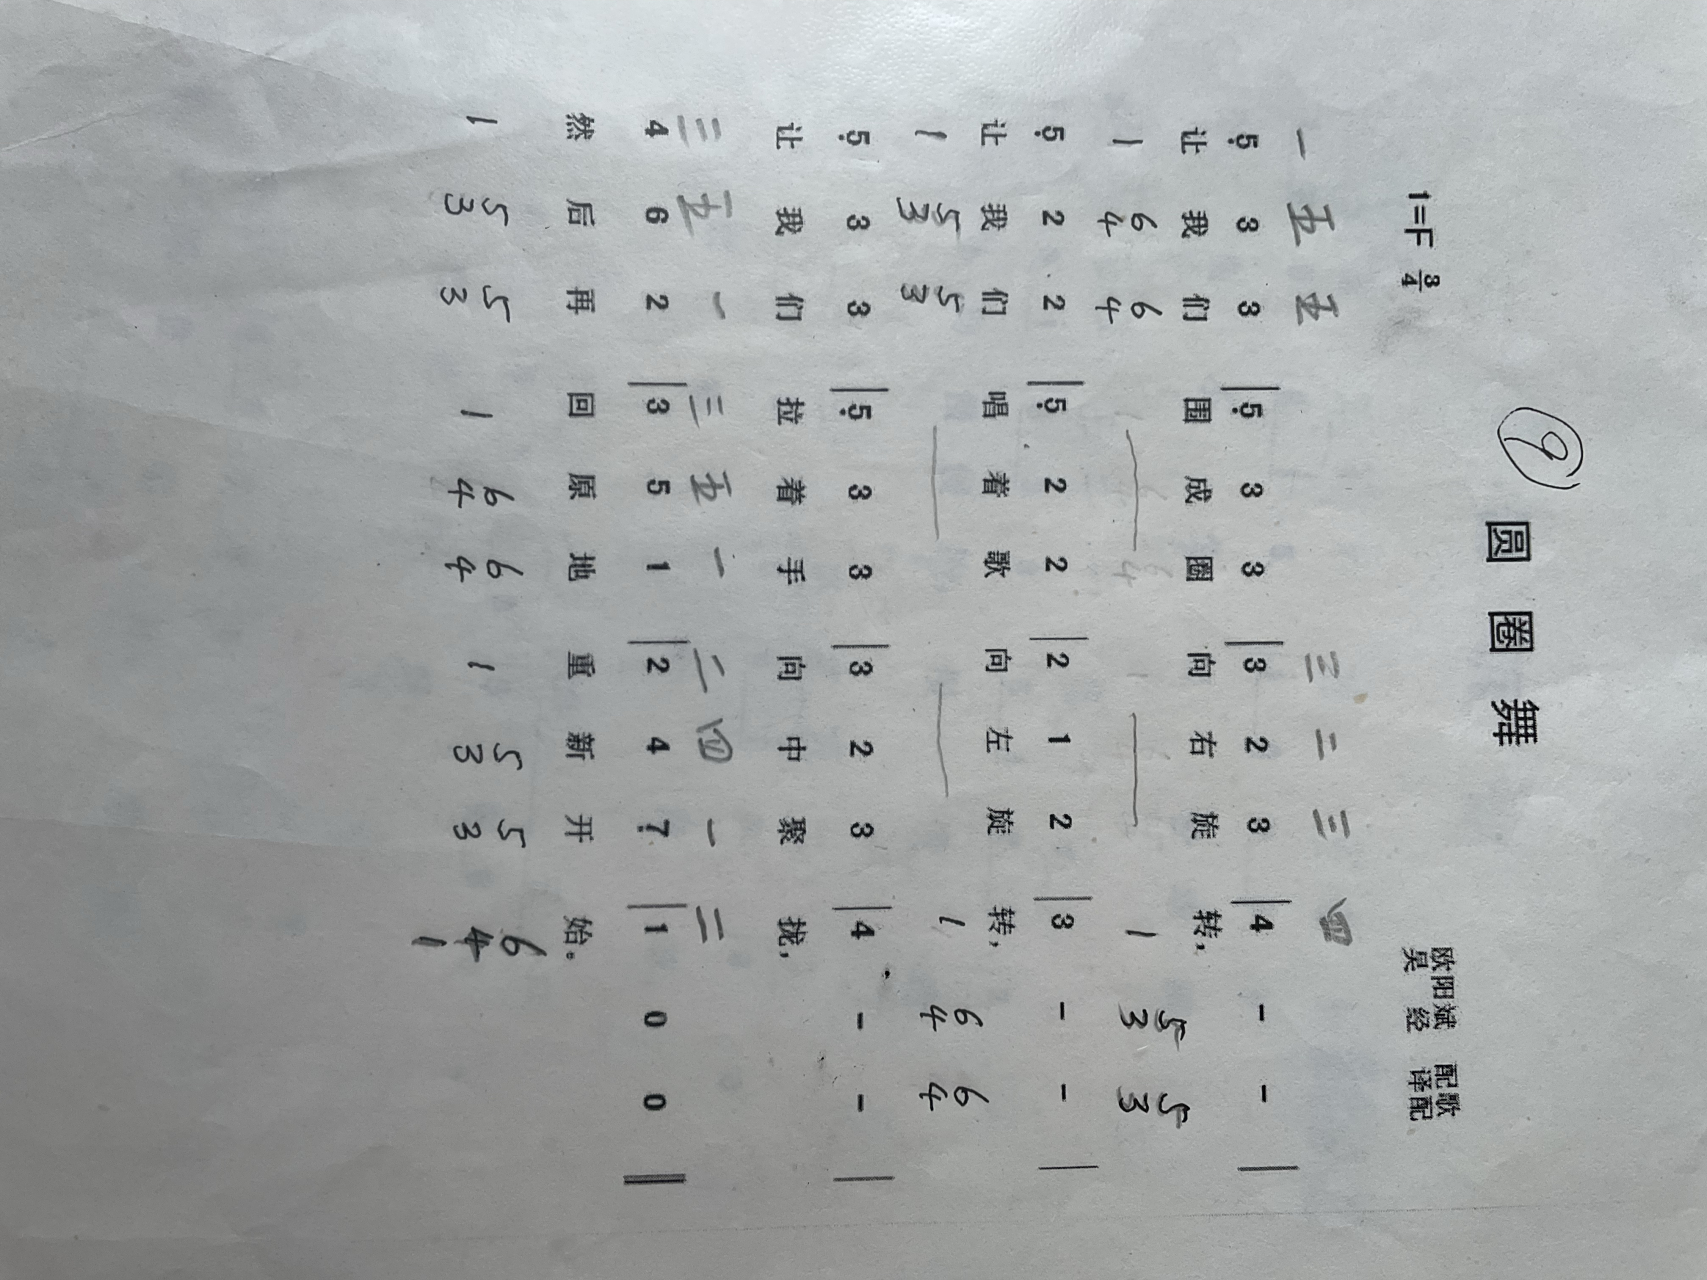 ⑨ 圆 圈 舞
1=F 3/4
欧阳斌 配歌
吴 经 译配
一 五 五 三 二 三 四
5̣ 3 3 | 5̣ 3 3 | 3 2 3 | 4 - - |
让 我 们 围 成 圈 向 右 旋 转，
1 64 64 1 53 53
5̣ 2 2 | 5̣ 2 2 | 2 1 2 | 3 - - |
让 我 们 唱 着 歌 向 左 旋 转，
1 53 53 1 64 64
5̣ 3 3 | 5̣ 3 3 | 3 2 3 | 4 - - |
让 我 们 拉 着 手 向 中 聚 拢，
三 五 一 三 五 一 二 四 一 二
4 6 2 | 3 5 1 | 2 4 7̣ | 1 0 0 ‖
然 后 再 回 原 地 重 新 开 始。
1 53 53 1 64 64 1 53 53 641